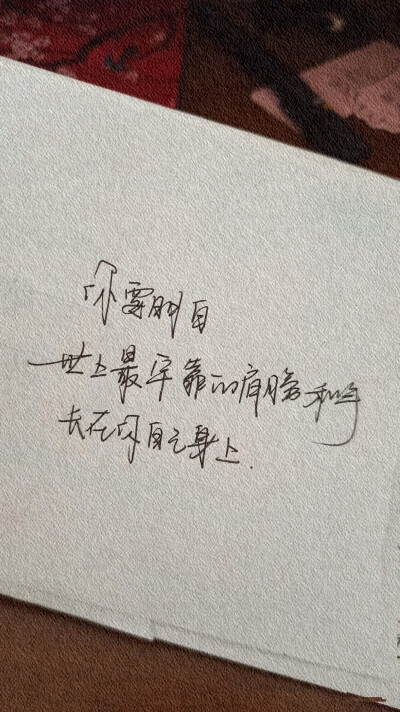 你要明白
世上最牢靠的肩膀和手
长在你自己身上.